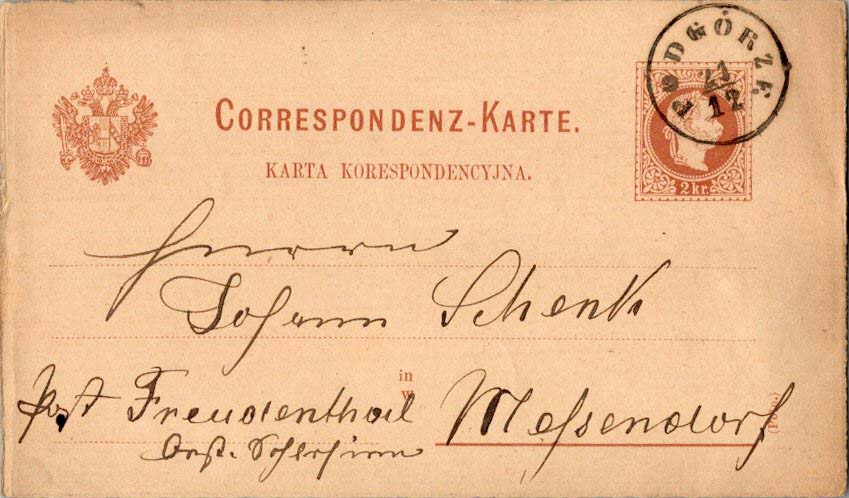 CORRESPONDENZ-KARTE.
KARTA KORESPONDENCYJNA.
PODGÓRZE
21
12
2 kr.
Herrn
Johann Schenk
in
w
Post Freudenthal Messendorf
Oest. Schlesien
(Poln.)